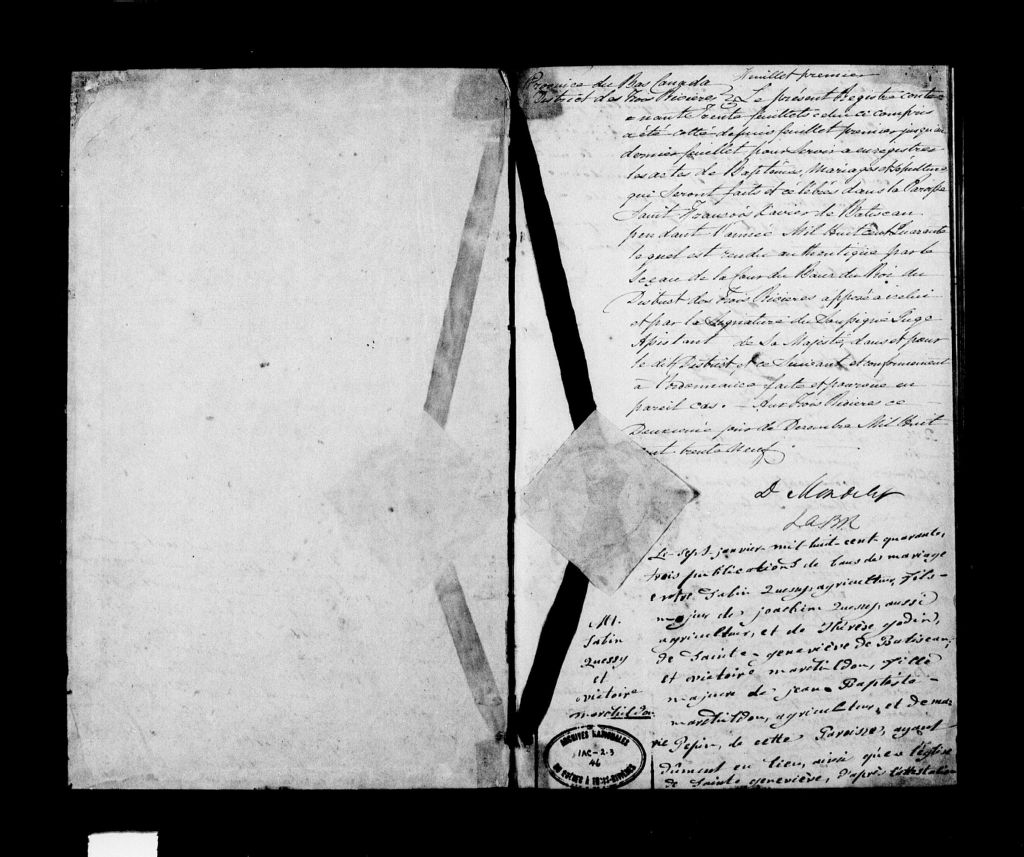 Province du Bas Canada
District des Trois Rivieres
Feuillet premier
Le présent Registre conte
nant trente feuillets celui ci compris
a été cotté depuis feuillet premier jusqu'au
dernier feuillet pour servir a enregistrer
les actes de Baptêmes, Mariages et Sépultures
qui seront faits et célébrés dans la Paroisse
Saint François Xavier de Batiscan
pendant l'année Mil Huit cent Quarante
lequel est rendu authentique par le
Sceau de la Cour du Banc du Roi du
District des Trois Rivieres apposé a icelui
et par la Signature du Soussigné Juge
de Sa Majesté, dans et pour
le dit District, et ce Suivant et conformement
a l'ordonnance faite et pourvue en
pareil cas. — Aux Trois Rivieres ce
Deuxieme jour de Decembre Mil Huit
cent trente Neuf.
D Mondelet
Le sept janvier mil huit-cent quarante,
trois publications de bans de mariage
entre Sabin Quessy, agriculteur, fils-
majeur de joachim Quessy, aussi
agriculteur, et de Thérèse godin,
de Sainte-geneviève de Batiscan,
et victoire marchildon, fille
majeure de jean Baptiste-
marchildon, agriculteur, et de ma
rie Pepin, de cette Paroisse, ayant
dûment eu lieu, ainsi qu'en l'église
de Sainte geneviève, d'après l'attestation
M.
Sabin
Quessy
et
victoire
marchildon
ARCHIVES NATIONALES
1AC-2-3
46
DU QUÉBEC À TROIS-RIVIÈRES